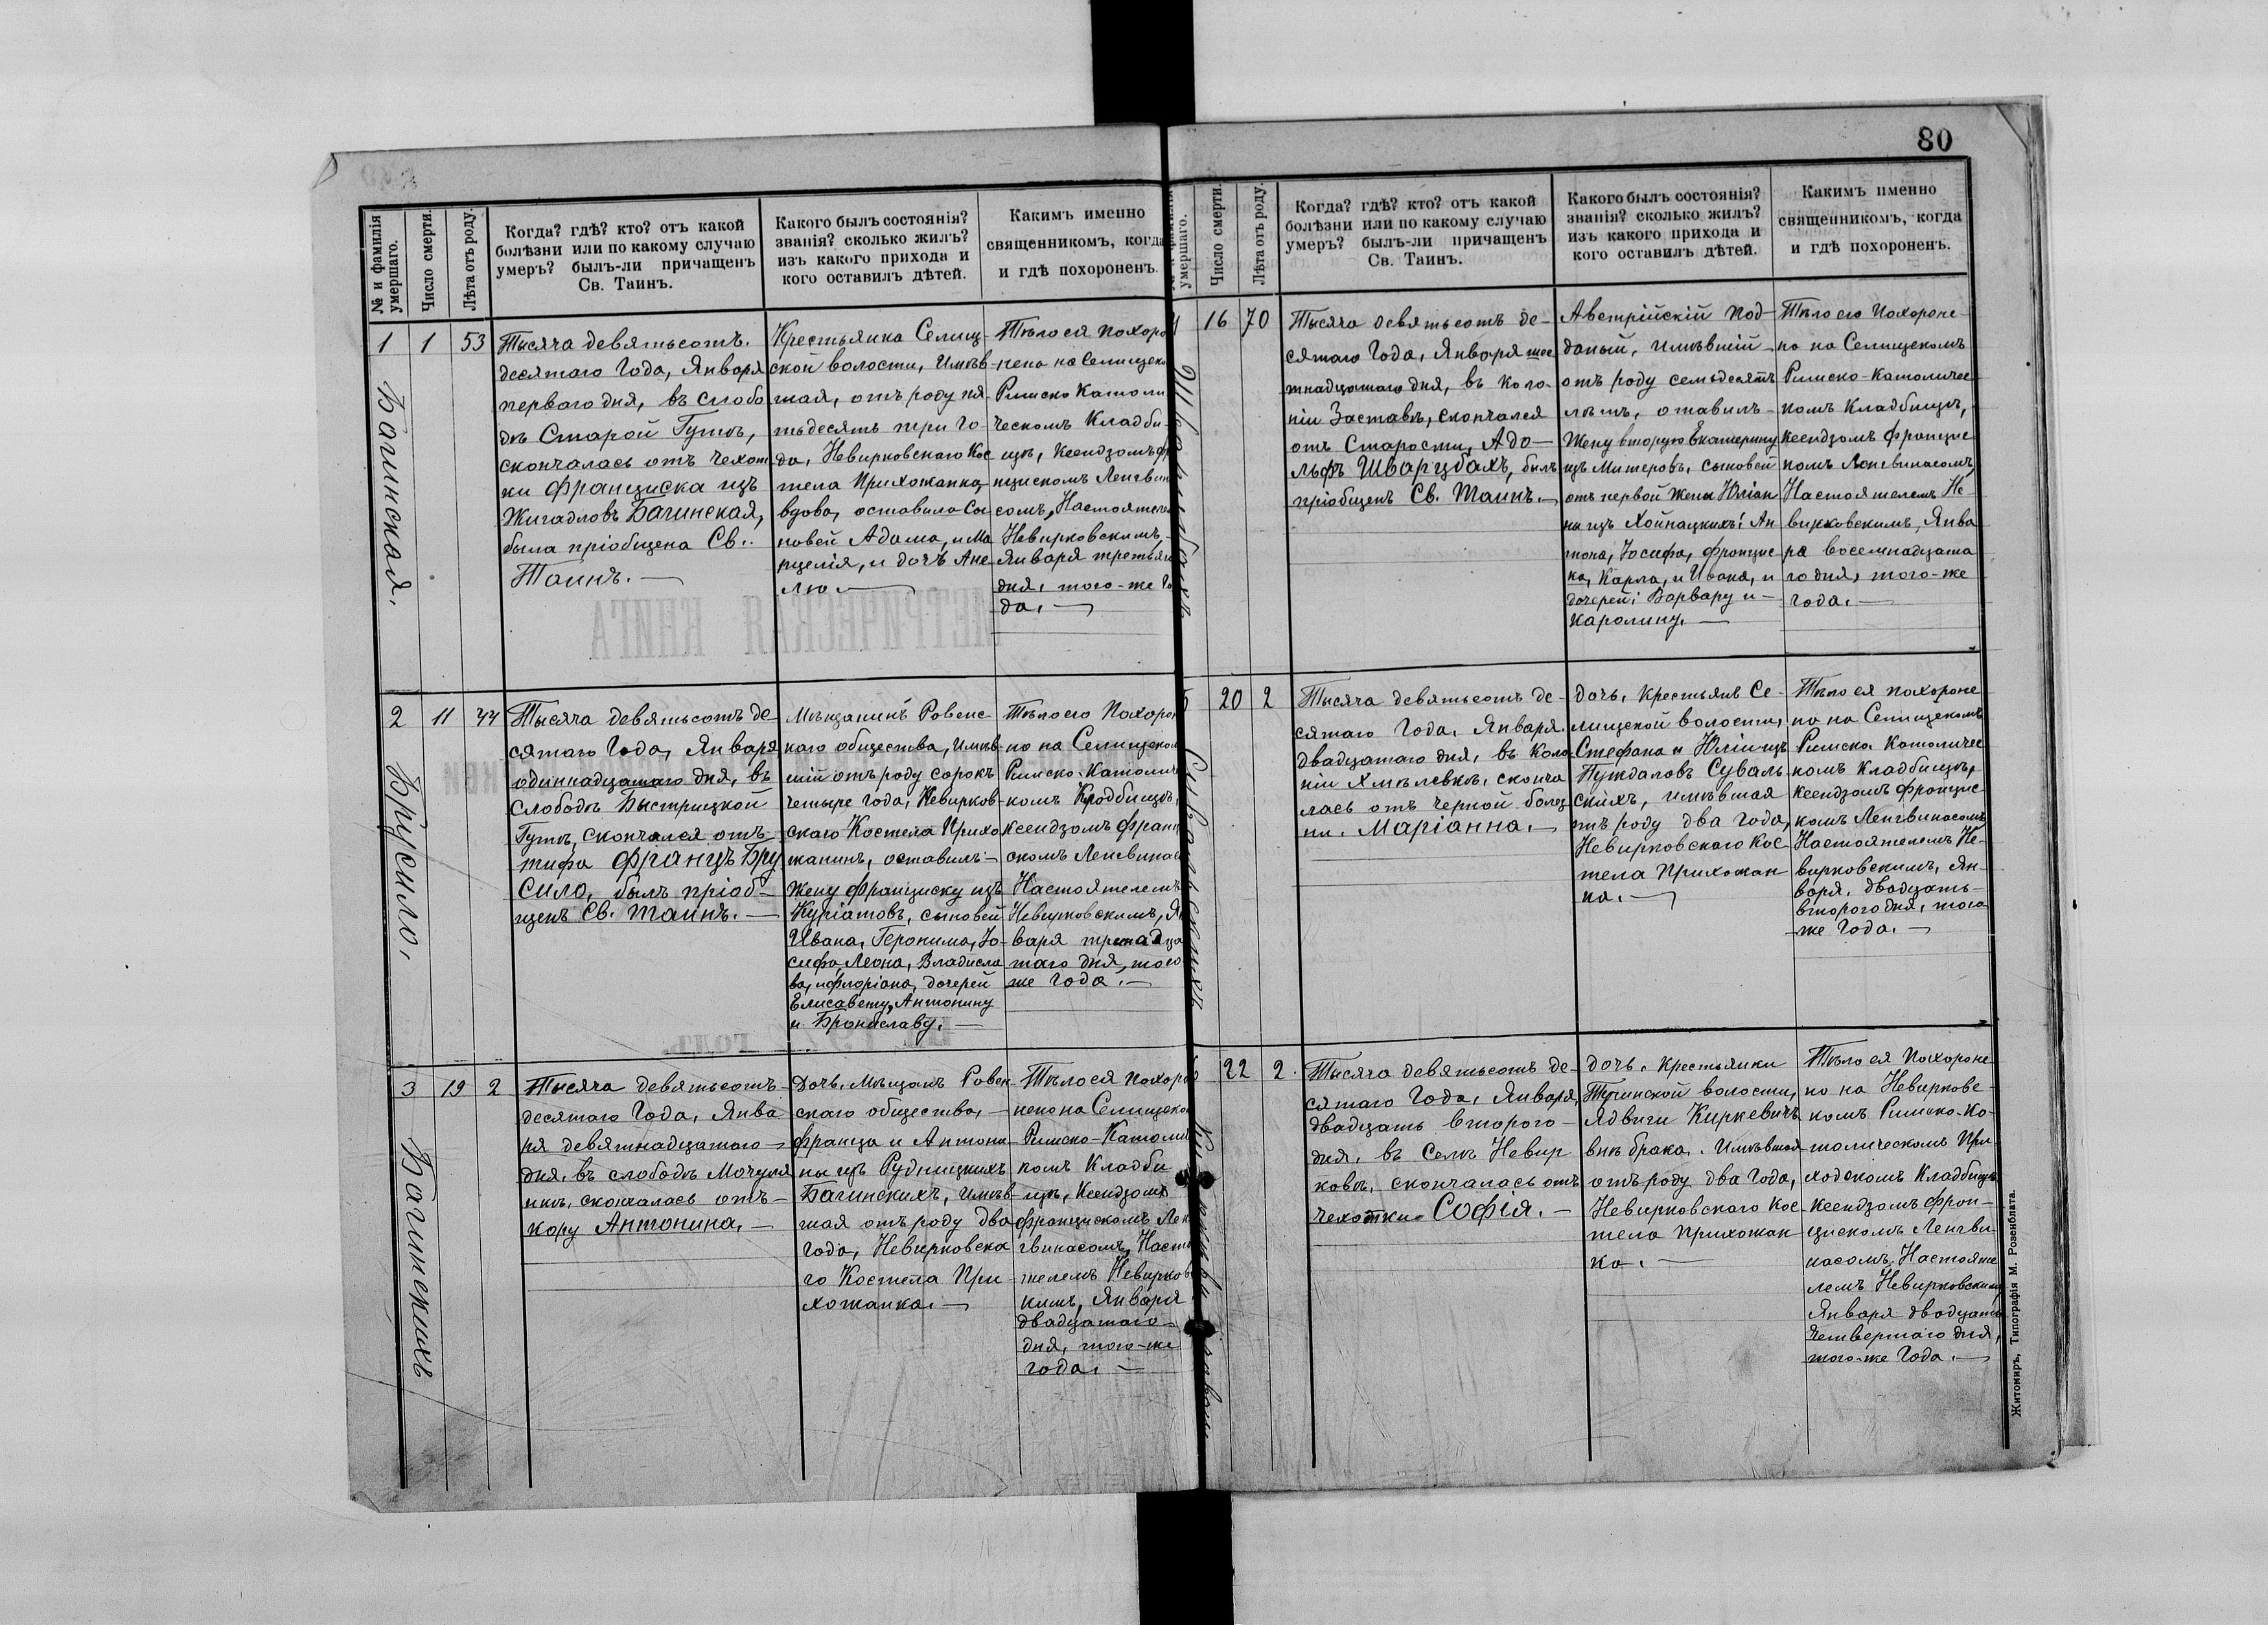 80
№ и фамилія
умершаго.
Число смерти.
Лѣта отъ роду.
Когда? гдѣ? кто? отъ какой
болѣзни или по какому случаю
умеръ? былъ-ли причащенъ
Св. Таинъ.
Какого былъ состоянія?
званія? сколько жилъ?
изъ какого прихода и
кого оставилъ дѣтей.
Какимъ именно
священникомъ, когда
и гдѣ похороненъ.
1
Багинская.
1
53
Тысяча девятьсотъ
десятаго Года, Января
перваго дня, въ слобо
дѣ Старой Гутѣ,
скончалась отъ чехот
ки Франциска изъ
Жигадловъ Багинская,
была пріобщена Св.
Таинъ.
Крестьянка Селищ-
ской волости, имѣв-
шая, отъ роду пя-
тьдесятъ три го-
да, Невирковскаго Кос
тела Прихожанка,
вдова, оставила Сы-
новей Адама, и Ма
рцелія, и дочь Ане-
лю
Тѣло ея похоро
нено на Селищско
Римско Католи
ческомъ Кладби-
щѣ, Ксендзомъ Фр
нцискомъ Ленгвин
сомъ, Настоятеле
Невирковскимъ,
Января третьяго
дня, того-же Го
да.
2
Брусило,
11
44
Тысяча девятьсотъ де-
сятаго Года, Января,
одиннадцатаго дня, въ
Слободѣ Быстрицкой
Гутѣ, скончался отъ
тифа Францъ Бру
сило, былъ пріоб-
щенъ Св. Таинъ.
Мѣщанинъ Ровенс-
каго общества, имѣв-
шій отъ роду сорокъ
четыре года, Невирков-
скаго Костела Прихо
жанинъ, оставилъ:
Жену Франциску изъ
Куріатовъ, сыновей
Ивана, Геронима, Іо-
сифа, Леона, Владисла
ва, и Флоріана, дочерей
Елисавету, Антонину
и Брониславу.
Тѣло его Похорон
но на Селищском
Римско-Католич
комъ Кладбищѣ,
Ксендзомъ Франц
скомъ Ленгвинас
Настоятелемъ
Невирковскимъ, Я
варя тринадца
таго дня, того
же Года.
3
Багинскихъ
19
2
Тысяча девятьсотъ
десятаго Года, Янва
ря девятнадцатаго
дня, въ слободѣ Мочуля
нкѣ, скончалась отъ
кору Антонина.
Дочь, Мѣщанъ Ровен
скаго общества,
Франца и Антони-
ны изъ Рудницкихъ
Багинскихъ, имѣв-
шая отъ роду два
года, Невирковска
го Костела При-
хожанка.
Тѣло ея похоро
нено на Селищско
Римско-Католи
комъ Кладби
щѣ, Ксендзомъ
Францискомъ Лен
гвинасомъ, Насто
телемъ Невирков
кимъ, Января
двадцатаго
дня, того-же
года.
умершаго.
Число смерти.
Лѣта отъ роду.
Когда? гдѣ? кто? отъ какой
болѣзни или по какому случаю
умеръ? былъ-ли причащенъ
Св. Таинъ.
Какого былъ состоянія?
званія? сколько жилъ?
изъ какого прихода и
кого оставилъ дѣтей.
Какимъ именно
священникомъ, когда
и гдѣ похороненъ.
Шварцбахъ
16
70
Тысяча девятьсотъ де-
сятаго Года, Января шес
тнадцатаго дня, въ Коло-
ніи Заставѣ, скончался
отъ Старости, Адо-
льфъ Шварцбахъ, былъ
пріобщенъ Св. Таинъ.
Австрійскій Под-
даный, имѣвшій
отъ роду семьдесятъ
лѣтъ, отавилъ
Жену вторую Екатерину
изъ Митеровъ, сыновей
отъ первой Жены Юліан
ны изъ Хойнацкихъ: Ан
тона, Іосифа, Францис
ка, Карла, и Ивана, и
дочерей: Варвару и
Каролину.
Тѣло его Похороне-
но на Селищскомъ
Римско-Католичес
комъ Кладбищѣ,
Ксендзомъ Францис
комъ Ленгвинасомъ,
Настоятелемъ Не-
вирковскимъ, Янва
ря восемнадцата
го дня, того-же
года.
Сувальскихъ
20
2
Тысяча девятьсотъ де-
сятаго Года, Января
двадцатаго дня, въ Коло-
ніи Хмѣлевкѣ, сконча
лась отъ черной болез
ни. Маріанна.
дочь, Крестьянъ Се-
лищской волости,
Стефана и Юліи изъ
Пуждаловъ Суваль
скихъ, имѣвшая
отъ роду два года,
Невирковскаго Кос-
тела Прихожан
ка.
Тѣло ея похороне
но на Селищскомъ
Римско-Католичес
комъ Кладбищѣ,
Ксендзомъ Францис-
комъ Ленгвинасомъ
Настоятелемъ Не-
вирковскимъ, Ян-
варя, двадцать
втораго дня, того
же Года.
22
2.
Тысяча девятьсотъ де-
сятаго Года, Января,
двадцать второго
дня, въ Селѣ Невир
ковѣ, скончалась отъ
чехотки Софія.
дочь, Крестьянки
Тучинской волости,
Ядвиги Киркевичъ
внѣ брака. Имѣвшая
отъ роду два года,
Невирковскаго Кос-
тела Прихожан
ка.
Тѣло ея Похороне
но на Невирковс-
комъ Римско-Ка-
толическомъ При
ходскомъ Кладбищѣ
Ксендзомъ Фран-
цискомъ Ленгви-
насомъ, Настояте
лемъ Невирковским
Января двадцать
четвертаго дня,
того-же Года.
Житомиръ, Типографія М. Розенблата.